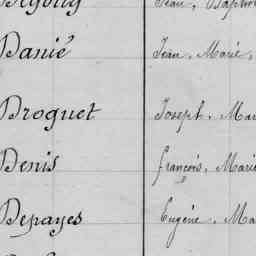 Jean, Bapt
Danié Jean, Marie,
Droguet Joseph, Mar
Denis françois, Marie
Depayes Eugène, Ma